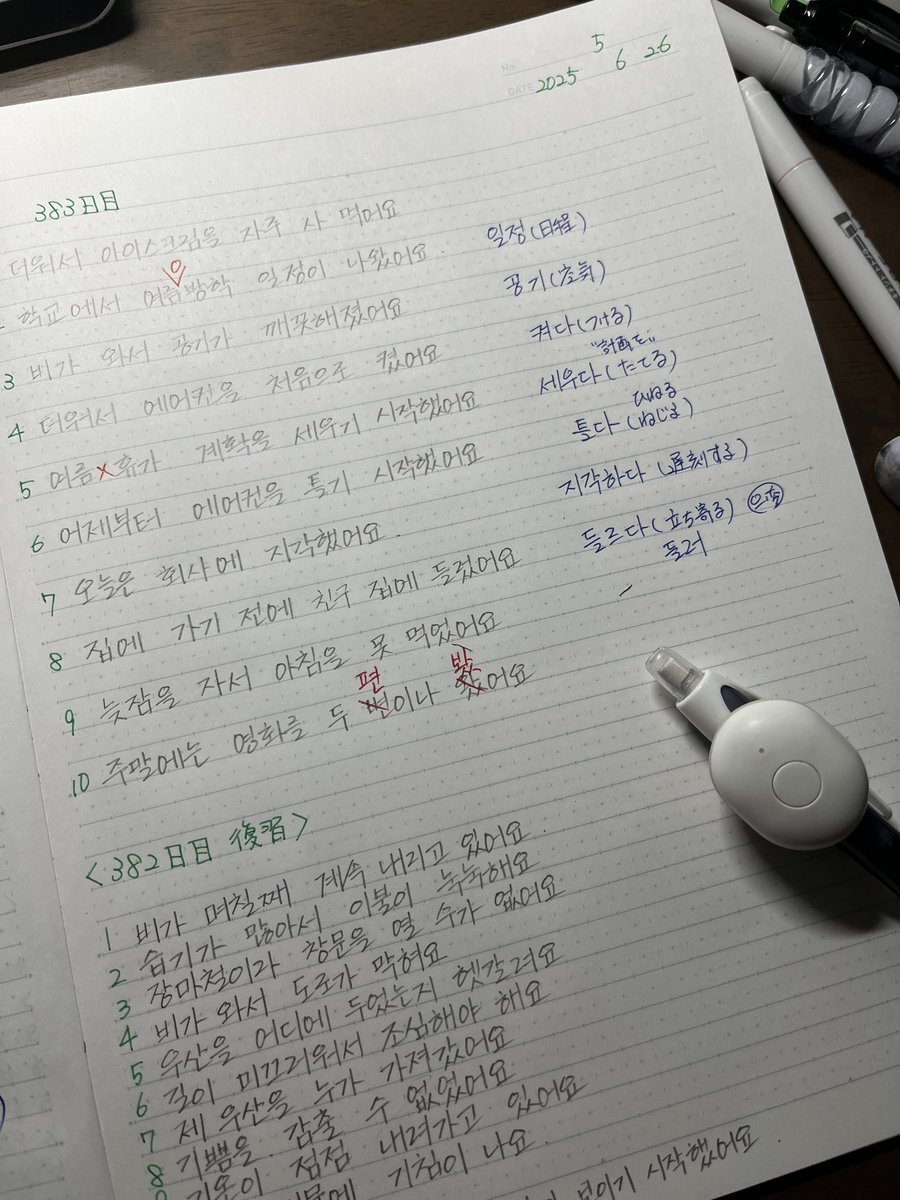 No.
DATE 2025 5 6 26
383日目
더워서 아이스크림을 자주 사 먹어요
학교에서 여름방학 일정이 나왔어요. 일정(日程)
3 비가 와서 공기가 깨끗해졌어요 공기(空気)
4 더워서 에어컨을 처음으로 켰어요 켜다(つける)
"計画を"
5 여름×휴가 계획을 세우기 시작했어요 세우다(たてる)
ひねる
6 어제부터 에어컨을 틀기 시작했어요 틀다(ねじる)
7 오늘은 회사에 지각했어요. 지각하다(遅刻する)
8 집에 가기 전에 친구 집에 들렀어요 들르다(立ち寄る)
들러
9 늦잠을 자서 아침을 못 먹었어요
편 봤
10 주말에는 영화를 두 변이나 았어요
<382日目 復習>
1 비가 며칠째 계속 내리고 있어요.
2 습기가 많아서 이불이 눅눅해요
3 장마철이라 창문을 열 수가 없어요
4 비가 와서 도로가 막혀요
5 우산을 어디에 두었는지 헷갈려요
6 길이 미끄러워서 조심해야 해요
7 제 우산을 누가 가져갔어요
8 기쁨을 감출 수 없었어요
9 기온이 점점 내려가고 있어요
기침이 나요
보이기 시작했어요.